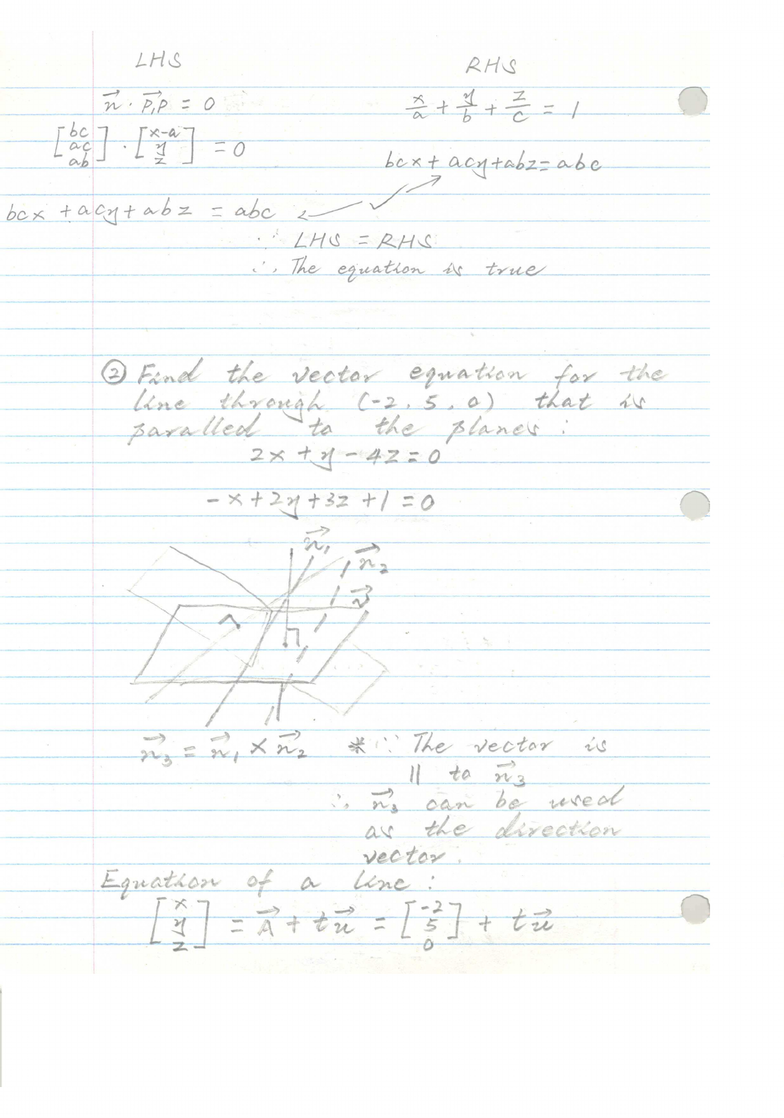 LHS RHS
n⃗ · P₁P⃗ = 0 x/a + y/b + z/c = 1
[bc ac ab] · [x-a y z] = 0
bcx + acy + abz = abc
bcx + acy + abz = abc ✓
∵ LHS = RHS
∴ The equation is true
② Find the vector equation for the
line through (-2, 5, 0) that is
paralled to the planes :
2x + y - 4z = 0
-x + 2y + 3z + 1 = 0
n⃗₁
n⃗₂
n⃗₃ = n⃗₁ × n⃗₂ * ∵ The vector is
|| to n⃗₃
∴ n⃗₃ can be used
as the direction
vector.
Equation of a line :
[x y z] = A⃗ + tu⃗ = [-2 5 0] + tu⃗